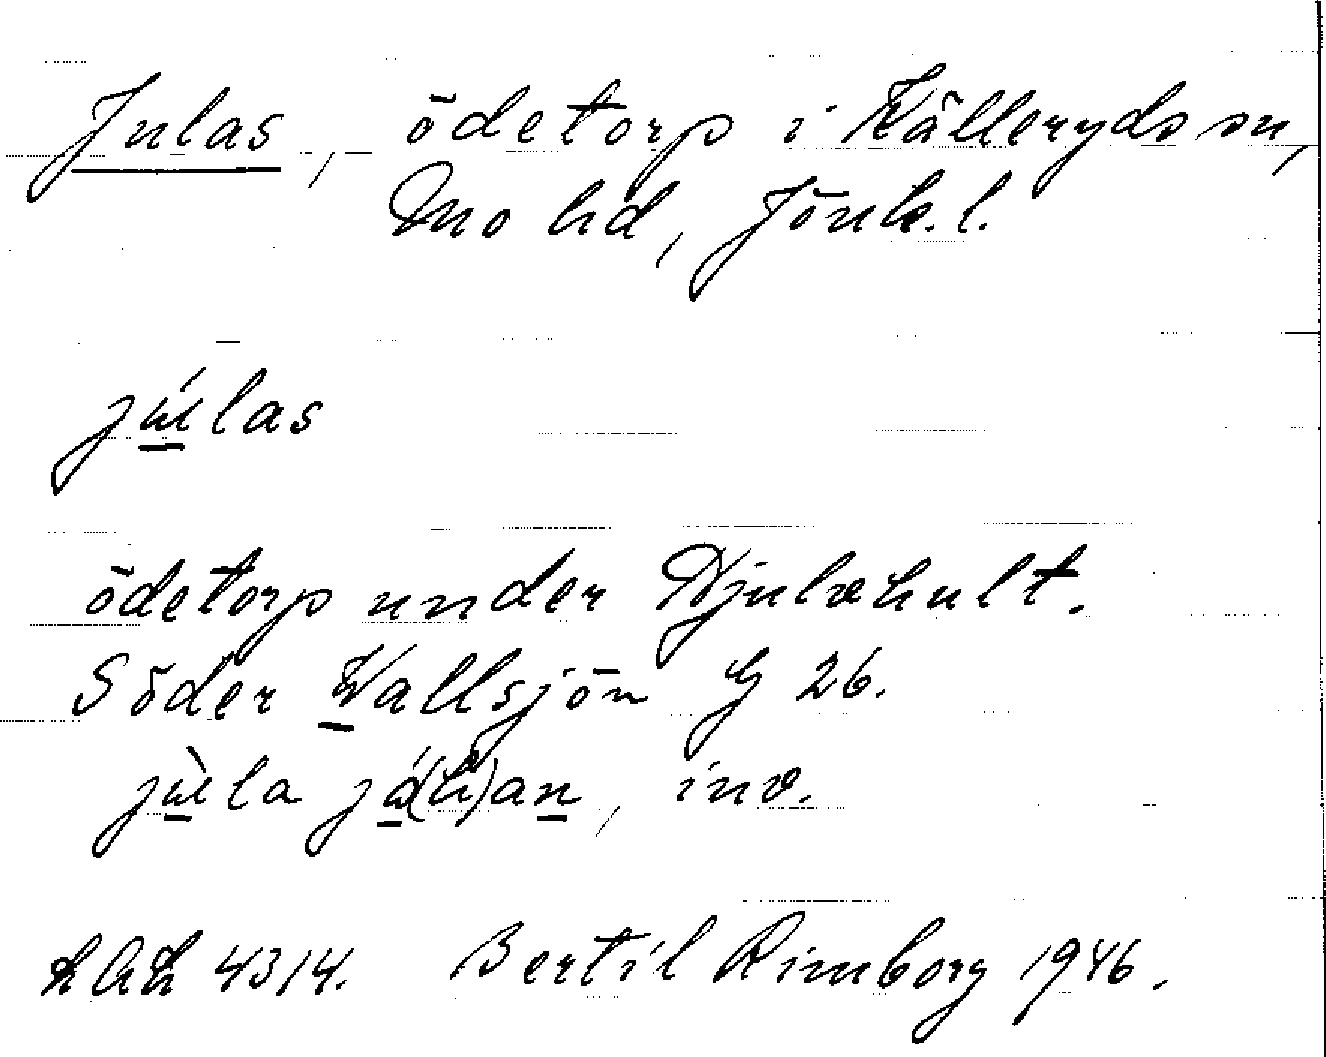 Julas, ödetorp i Källeryds sn,
Mo hd, Jönk. l.
júlas
ödetorp under Djulahult.
Söder Vallsjön G 26.
jùla já(h)an, inv.
LAL 4314. Bertil Rimborg 1946.